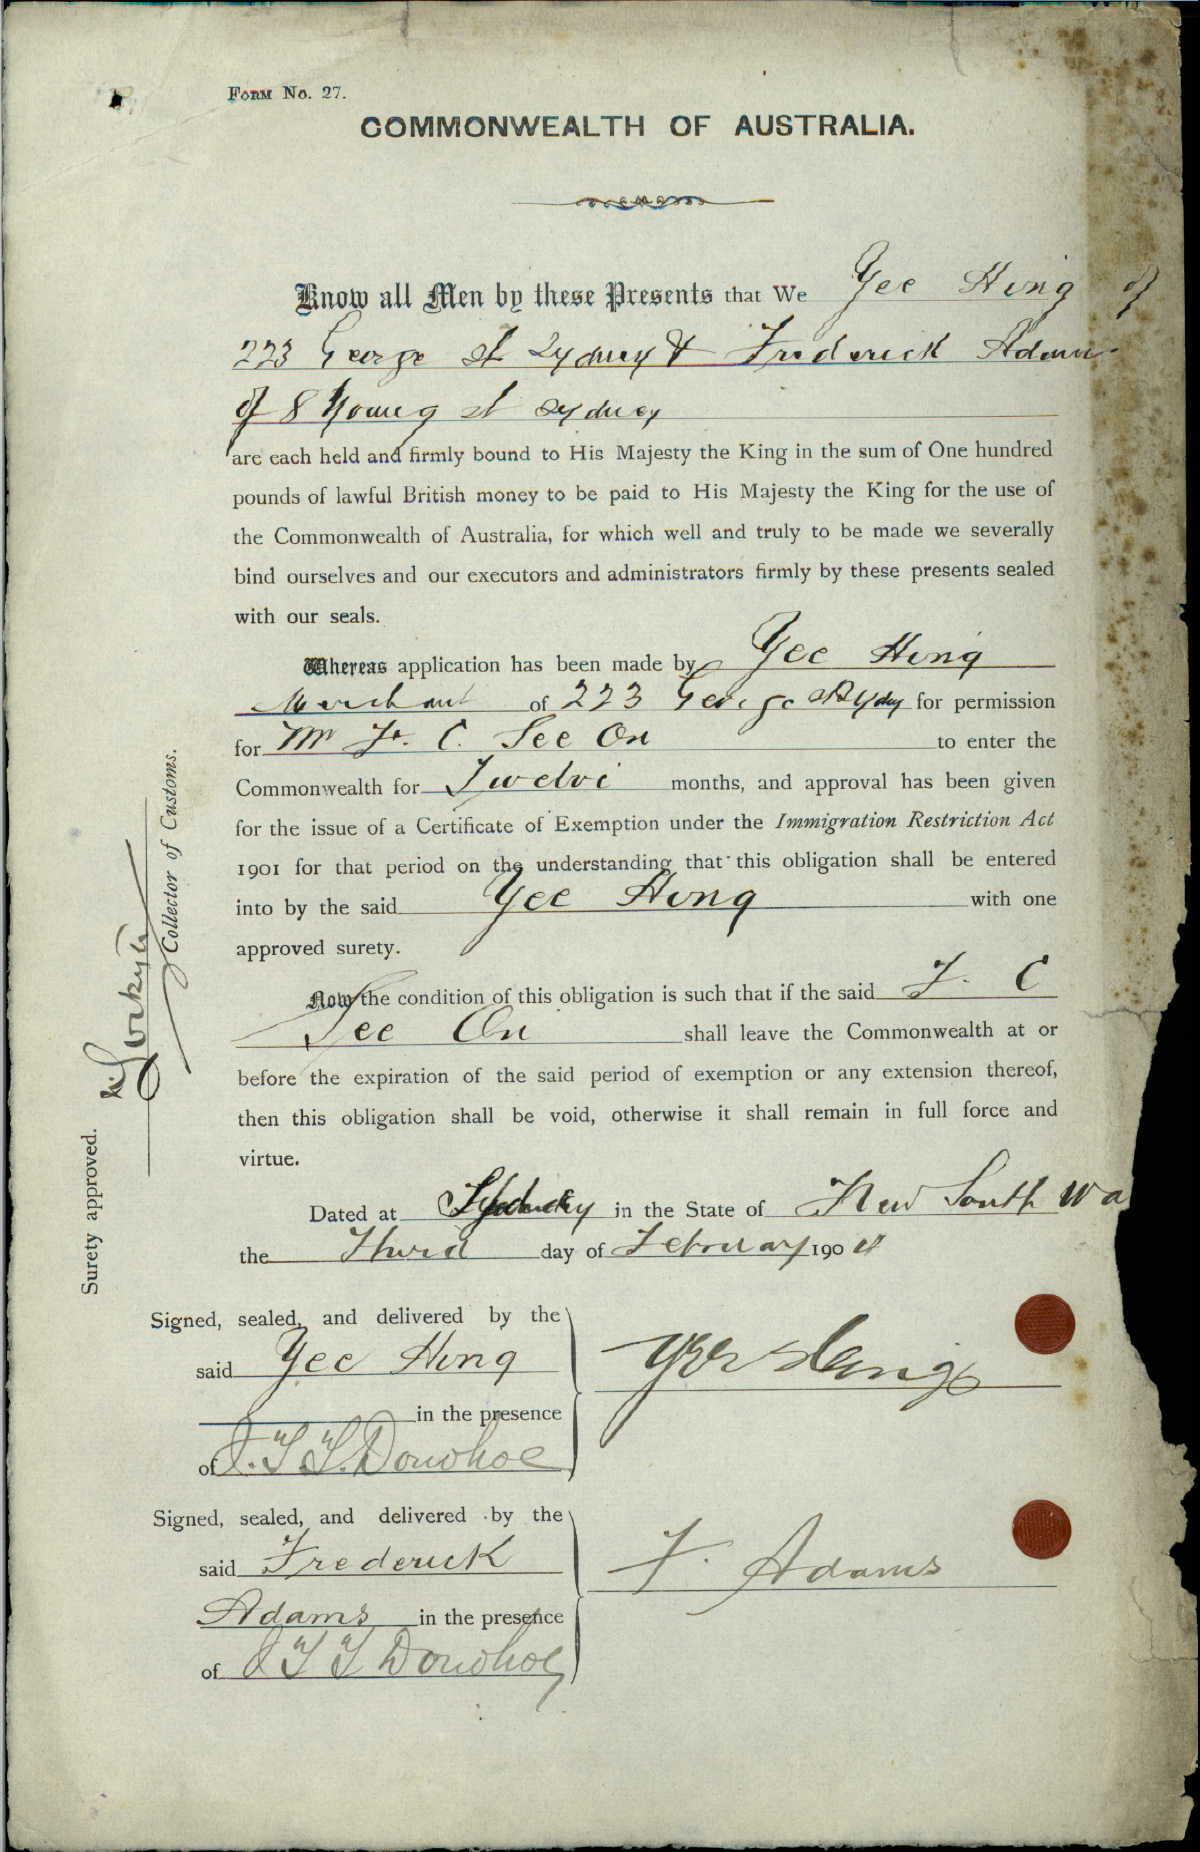 FORM No. 27.
COMMONWEALTH OF AUSTRALIA.
Know all Men by these Presents that We Yee Hing of
223 George St Sydney & Frederick Adams
of 8 Young St Sydney
are each held and firmly bound to His Majesty the King in the sum of One hundred
pounds of lawful British money to be paid to His Majesty the King for the use of
the Commonwealth of Australia, for which well and truly to be made we severally
bind ourselves and our executors and administrators firmly by these presents sealed
with our seals.
Whereas application has been made by Yee Hing
Merchant of 223 George St Sydy for permission
for Mr F. C. See On to enter the
Commonwealth for Twelve months, and approval has been given
for the issue of a Certificate of Exemption under the Immigration Restriction Act
1901 for that period on the understanding that this obligation shall be entered
into by the said Yee Hing with one
approved surety.
Now the condition of this obligation is such that if the said F. C
See On shall leave the Commonwealth at or
before the expiration of the said period of exemption or any extension thereof,
then this obligation shall be void, otherwise it shall remain in full force and
virtue.
Dated at Sydney in the State of New South Wa
the Third day of February 190
Signed, sealed, and delivered by the
said Yee Hing
in the presence
of J. T. T. Donohoe
Yee Hing
Signed, sealed, and delivered by the
said Frederick
Adams in the presence
of J T T Donohoe
F. Adams
Surety approved.
Collector of Customs.